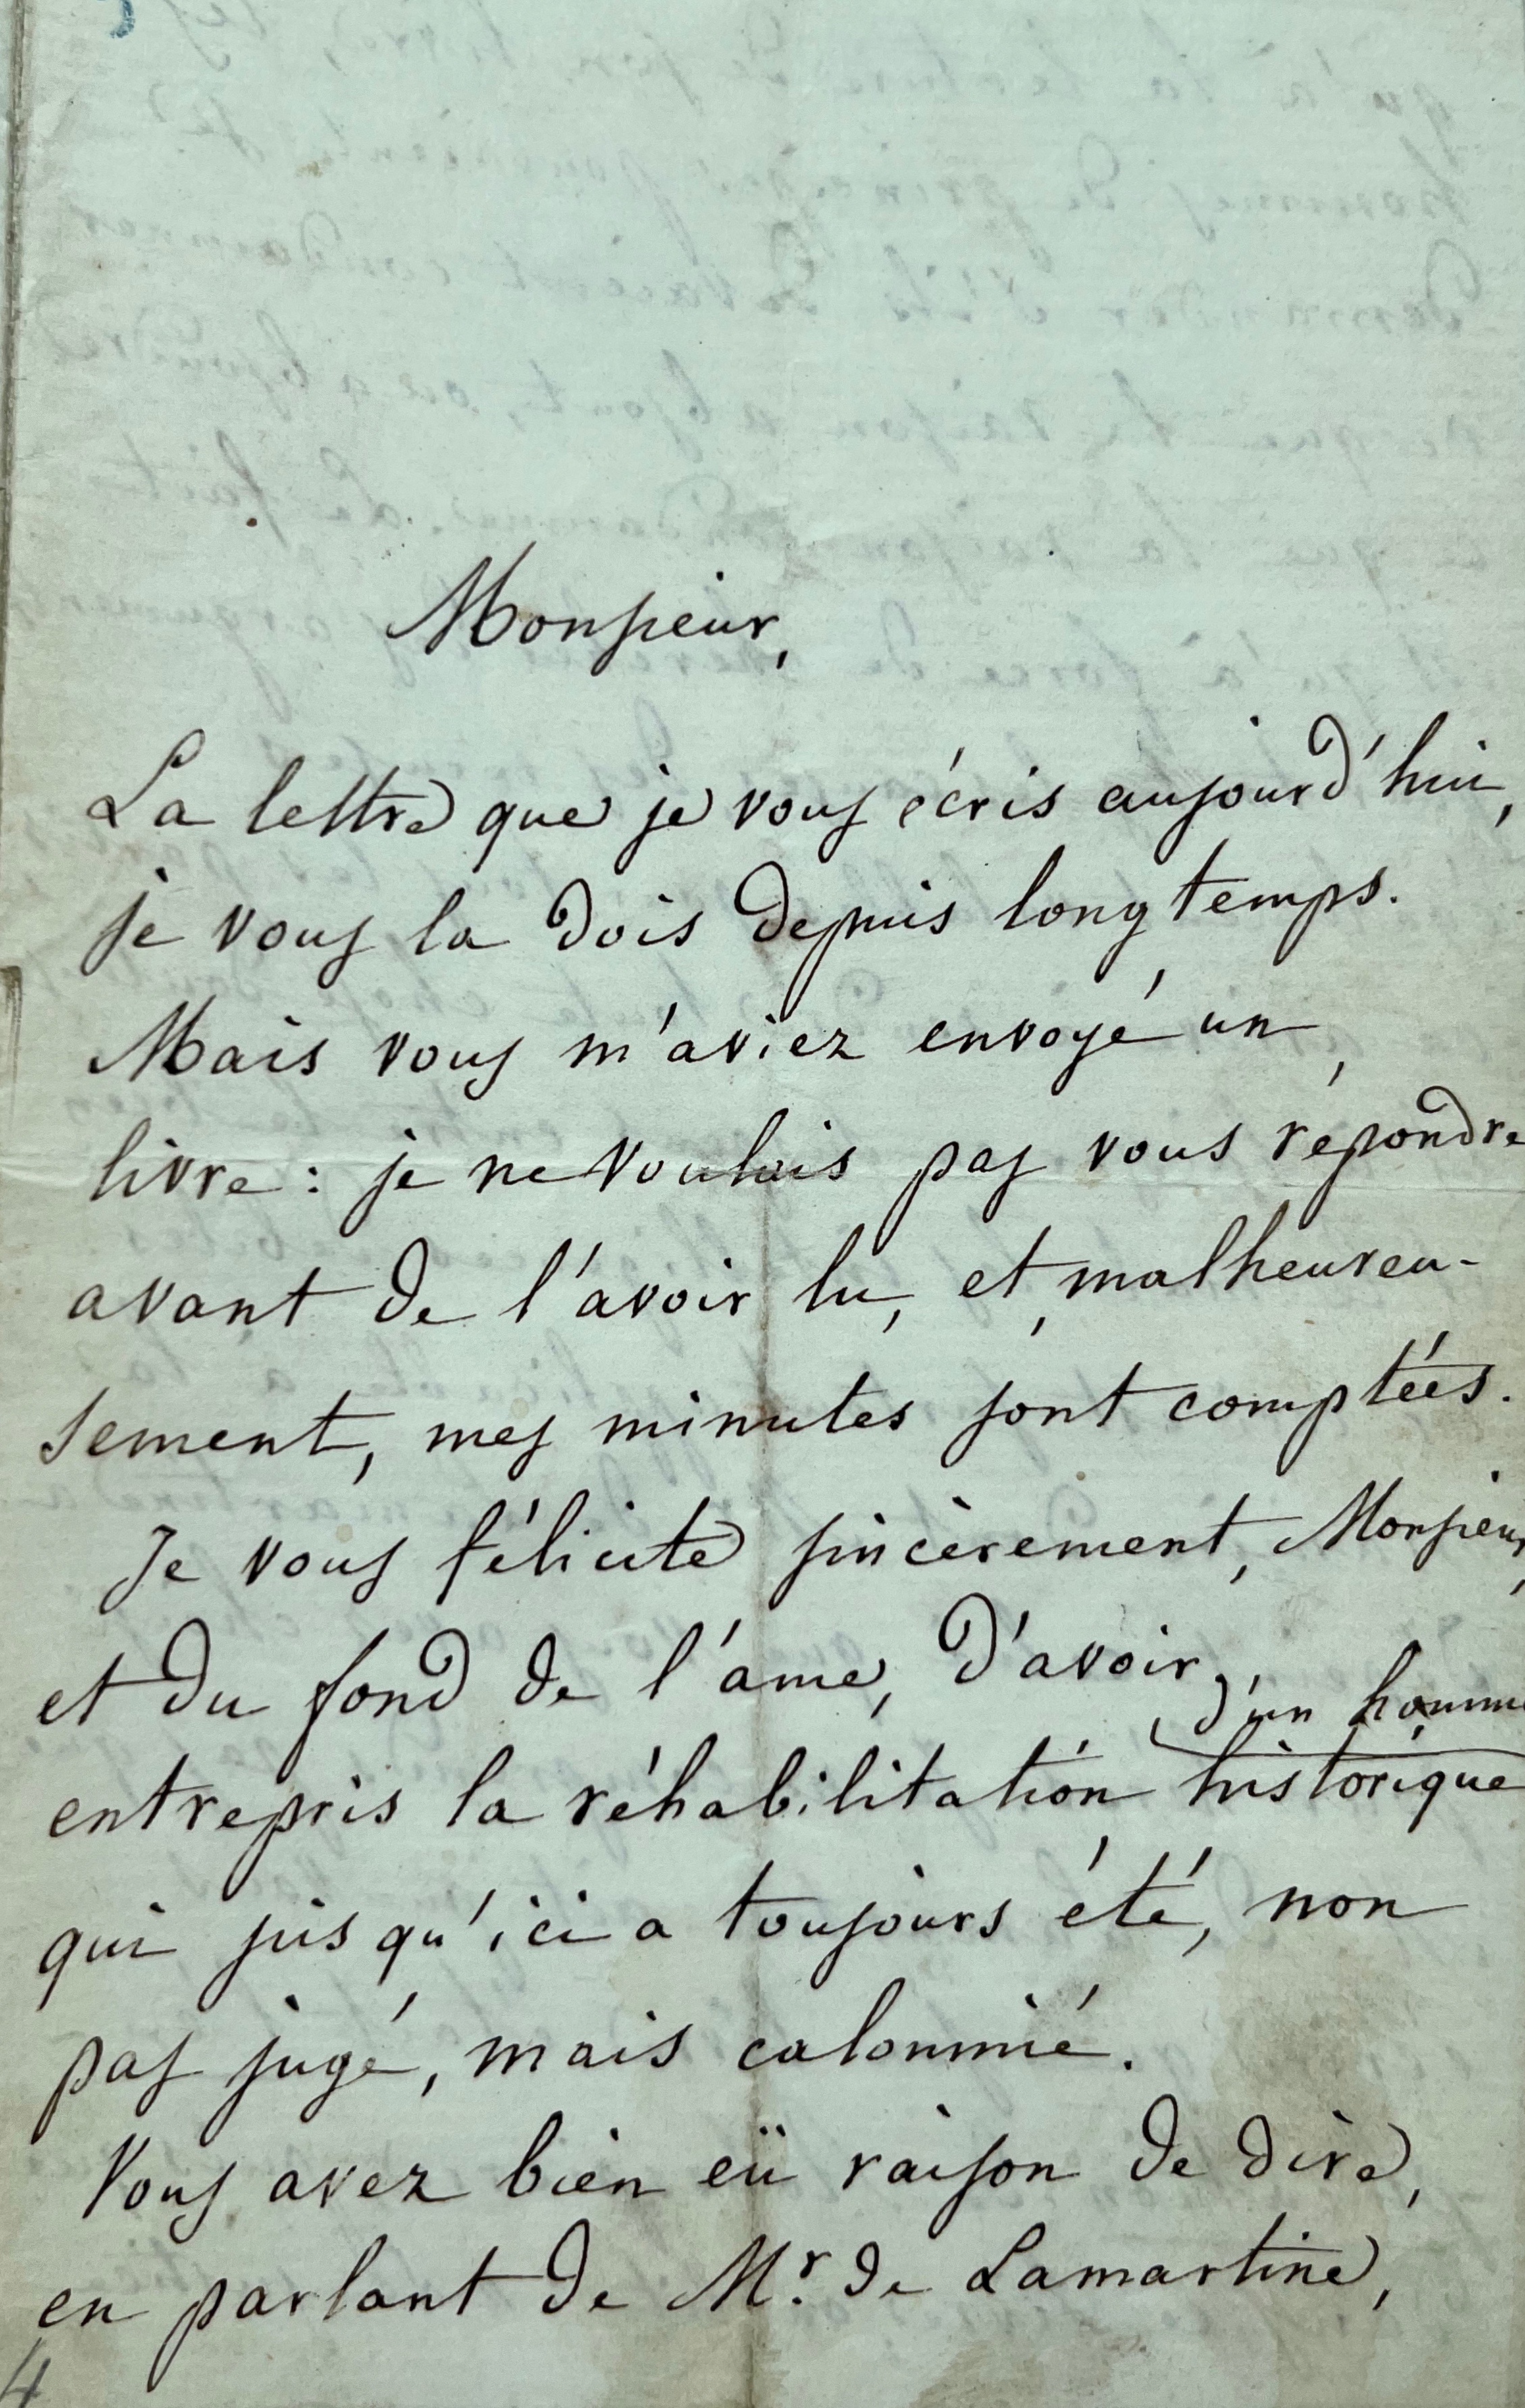 Monsieur,
La lettre que je vous écris aujourd'hui,
je vous la dois depuis longtemps.
Mais vous m'aviez envoyé un
livre : je ne voulais pas vous répondre
avant de l'avoir lu, et, malheureu-
sement, mes minutes sont comptées.
Je vous félicite sincèrement, Monsieur,
et du fond de l'ame, d'avoir
d'un homme
entrepris la réhabilitation historique
qui jusqu'ici a toujours été, non
pas jugé, mais calomnié.
Vous avez bien eü raison de dire,
en parlant de Mr. de Lamartine,
4